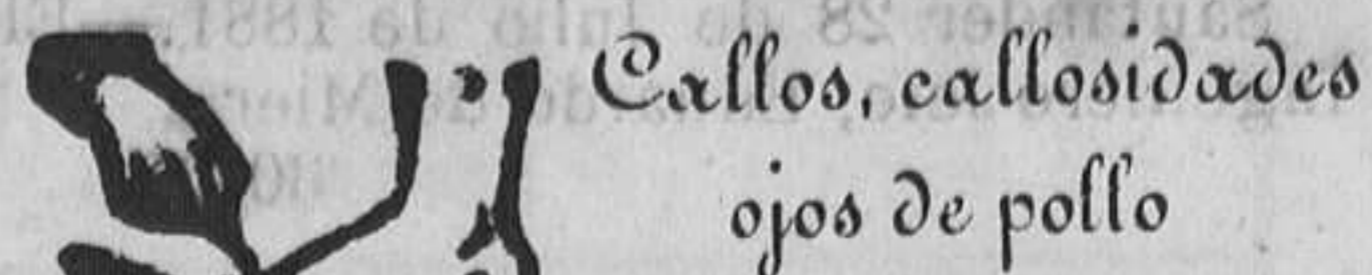 Callos, callosidades
ojos de pollo